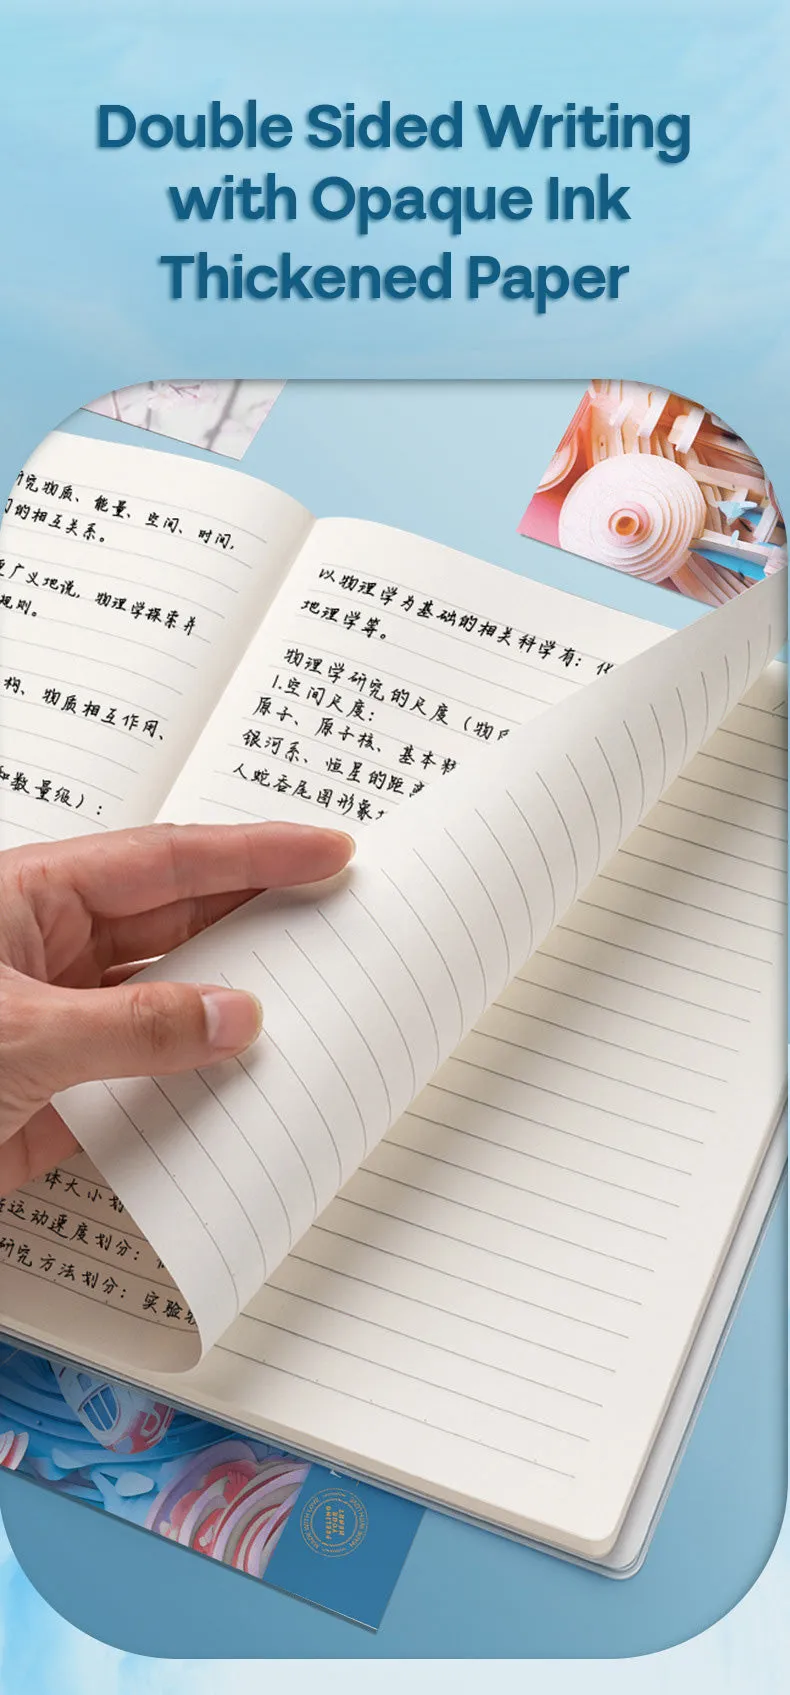 Double Sided Writing
with Opaque Ink
Thickened Paper
究物质、能量、空间、时间,
的相互关系。
广义地说, 物理学探索并
规则。
构、物质相互作用、
和数量级):
以物理学为基础的相关科学有:
地理学等。
物理学研究的尺度(物
1.空间尺度:
原子、原子核、基本
银河系、恒星的距离
人蛇吞尾图形象
体大小划
运动速度划分:
研究方法划分: 实验
FEELING
YOUR
HEART
MADE WITH LOVE